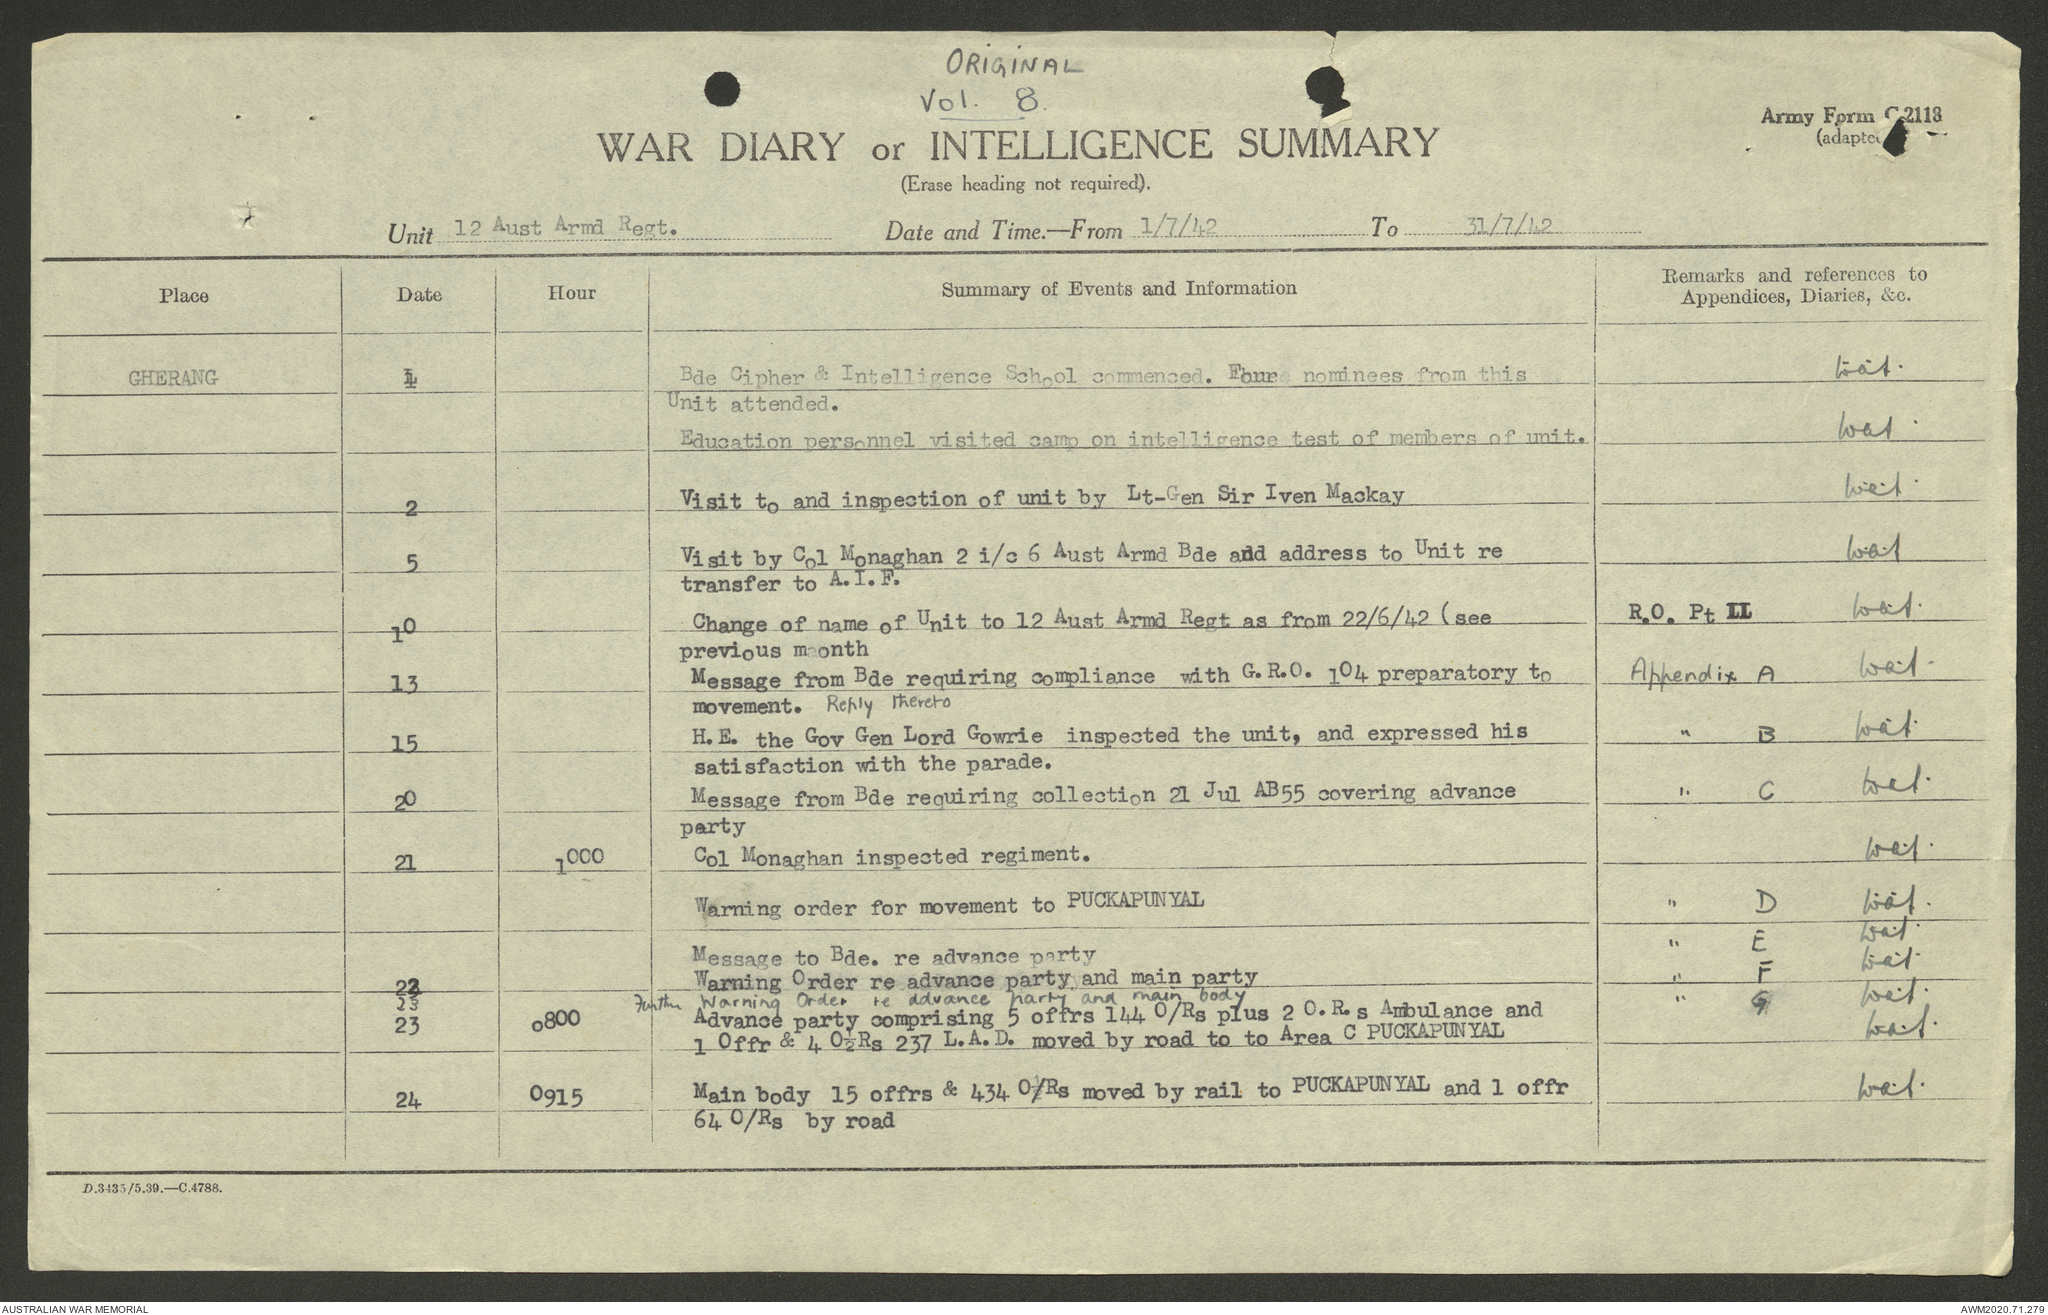 ORIGINAL
Vol. 8.
Army Form C 2118
(adapte
WAR DIARY or INTELLIGENCE SUMMARY
(Erase heading not required).
Unit 12 Aust Armd Regt. Date and Time.—From 1/7/42 To 31/7/42
Place Date Hour Summary of Events and Information Remarks and references to
Appendices, Diaries, &c.
GHERANG 1 Bde Cipher & Intelligence School commenced. Four nominees from this
Unit attended.
Education personnel visited camp on intelligence test of members of unit.
2 Visit to and inspection of unit by Lt-Gen Sir Iven Mackay
5 Visit by Col Monaghan 2 i/c 6 Aust Armd Bde and address to Unit re
transfer to A.I.F.
10 Change of name of Unit to 12 Aust Armd Regt as from 22/6/42 (see R.O. Pt II
previous month
13 Message from Bde requiring compliance with G.R.O. 104 preparatory to Appendix A
movement. Reply thereto
15 H.E. the Gov Gen Lord Gowrie inspected the unit, and expressed his " B
satisfaction with the parade.
20 Message from Bde requiring collection 21 Jul AB55 covering advance " C
party
21 1000 Col Monaghan inspected regiment.
Warning order for movement to PUCKAPUNYAL " D
Message to Bde. re advance party " E
22 Warning Order re advance party and main party " F
23 Further Warning Order re advance party and main body " G
23 0800 Advance party comprising 5 offrs 144 O/Rs plus 2 O.R.s Ambulance and
1 Offr & 4 O/Rs 237 L.A.D. moved by road to to Area C PUCKAPUNYAL
24 0915 Main body 15 offrs & 434 O/Rs moved by rail to PUCKAPUNYAL and 1 offr
64 O/Rs by road
D.3435/5.39.—C.4788.
AUSTRALIAN WAR MEMORIAL AWM2020.71.279